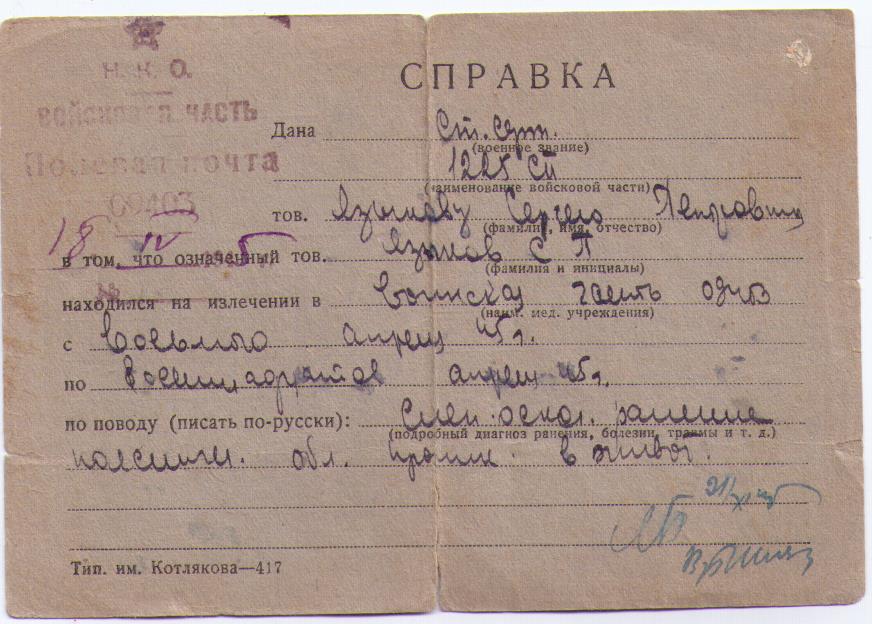 Н. К. О.
ВОЙСКОВАЯ ЧАСТЬ
Полевая почта
09403
18 IV 5
СПРАВКА
Дана Ст. серж.
(военное звание)
1225 СП
(наименование войсковой части)
тов. Языкову Сергею Петровичу
(фамилия, имя, отчество)
в том, что означенный тов. Языков С П
(фамилия и инициалы)
находился на излечении в Воинская часть 09403
(наим. мед. учреждения)
с восьмого апреля 45 г.
по восемнадцатое апреля 45 г.
по поводу (писать по-русски): Слеп. оскол. ранение
(подробный диагноз ранения, болезни, травмы и т. д.)
обл. в живот.
Тип. им. Котлякова—417